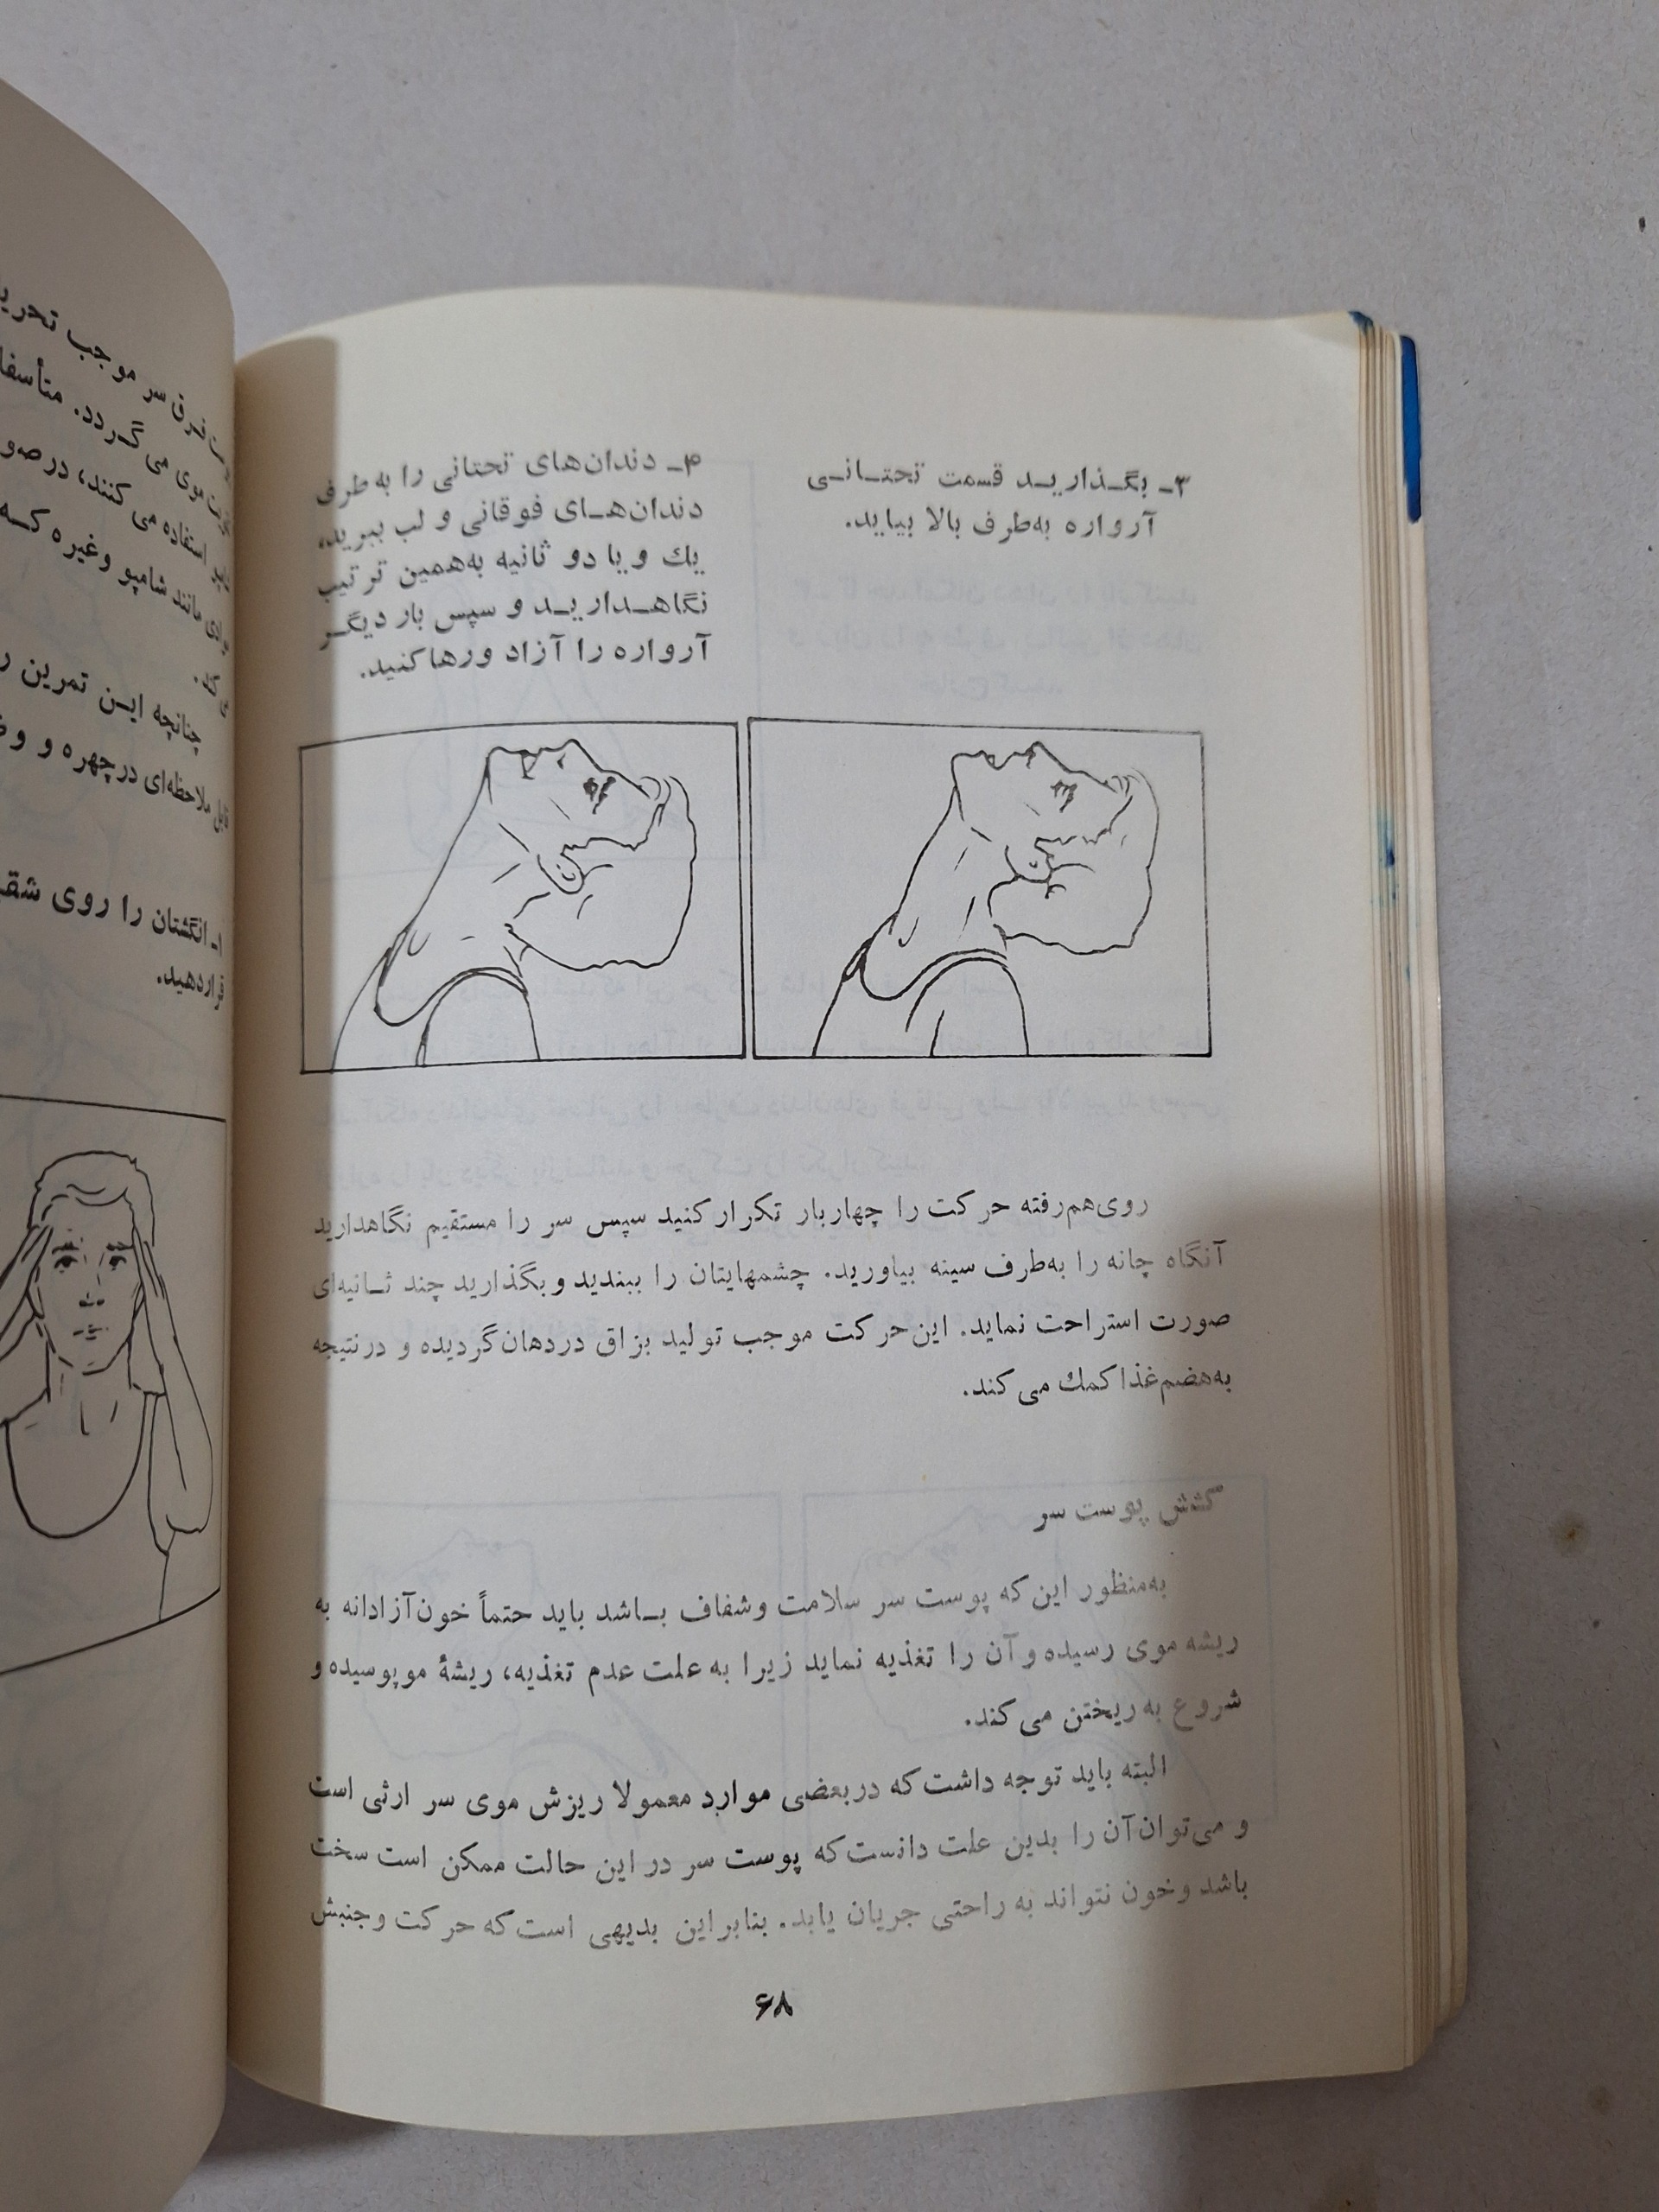 ۳ـ بگـذاریـد قسمت تحتـانـی
آرواره به‌طرف بالا بیاید.
۴ـ دندان‌های تحتانی را به‌طرف
دندان‌هـای فوقانی و لب ببرید،
یك و یا دو ثانیه به‌همین ترتیب
نگاهـداریـد و سپس بار دیگـر
آرواره را آزاد ورها کنید.
روی‌هم‌رفته حرکت را چهاربار تکرار کنید سپس سر را مستقیم نگاهدارید
آنگاه چانه را به‌طرف سینه بیاورید. چشمهایتان را ببندید و بگذارید چند ثـانیه‌ای
صورت استراحت نماید. این حرکت موجب تولید بزاق دردهان گردیده و درنتیجه
به‌هضم غذا کمك می‌کند.
کشش پوست سر
به‌منظور این که پوست سر سلامت وشفاف بـاشد باید حتماً خون آزادانه به
ریشه موی رسیده و آن را تغذیه نماید زیرا به علت عدم تغذیه، ریشهٔ مو پوسیده و
شروع به ریختن می‌کند.
البته باید توجه داشت که دربعضی موارد معمولا ریزش موی سر ارثی است
و می‌توان آن را بدین علت دانست که پوست سر در این حالت ممکن است سخت
باشد وخون نتواند به راحتی جریان یابد. بنابراین بدیهی است که حرکت وجنبش
۶۸
فرق سر موجب
موی می‌گردد.
استفاده می‌کنند،
مانند شامپو وغیره کـه
چنانچه ایـن تمرین
ملاحظه‌ای درچهره و
۱ـ انگشتان را روی
قراردهید.